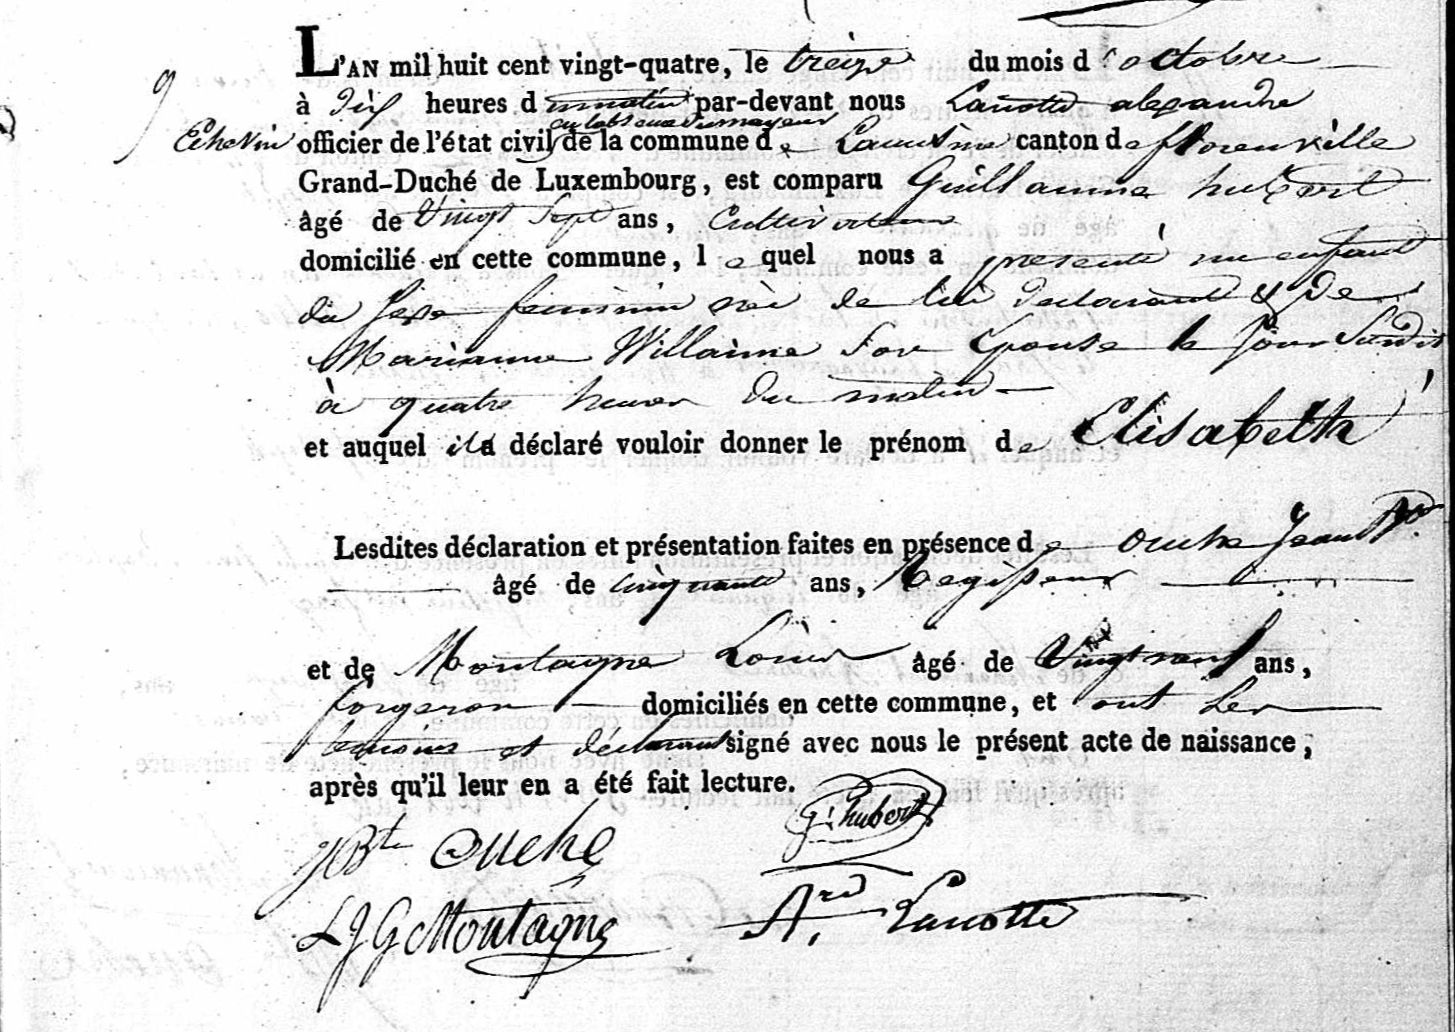 L'AN mil huit cent vingt-quatre, le treize du mois d'octobre
à dix heures du matin par-devant nous Lanotte alexandre
Echevin en l'absence du mayeur
officier de l'état civil de la commune de canton de florenville
Grand-Duché de Luxembourg, est comparu Guillaume hubert
âgé de Vingt Sept ans, Cultivateur
domicilié en cette commune, lequel nous a presenté un enfant
du sexe feminin née de lui declarant & de
Marianne Willaime Son Epouse le jour Susdit
à quatre heures du matin
et auquel il a déclaré vouloir donner le prénom de Elisabeth
Lesdites déclaration et présentation faites en présence de ouche Jean Bte
âgé de cinquante ans, Regisseur
et de Montaigne Louis âgé de Vingt neuf ans,
forgeron domiciliés en cette commune, et ont Les
temoins et déclarant signé avec nous le présent acte de naissance,
après qu'il leur en a été fait lecture.
JBte ouche G: hubert
LJG Montagne Ard. Lanotte